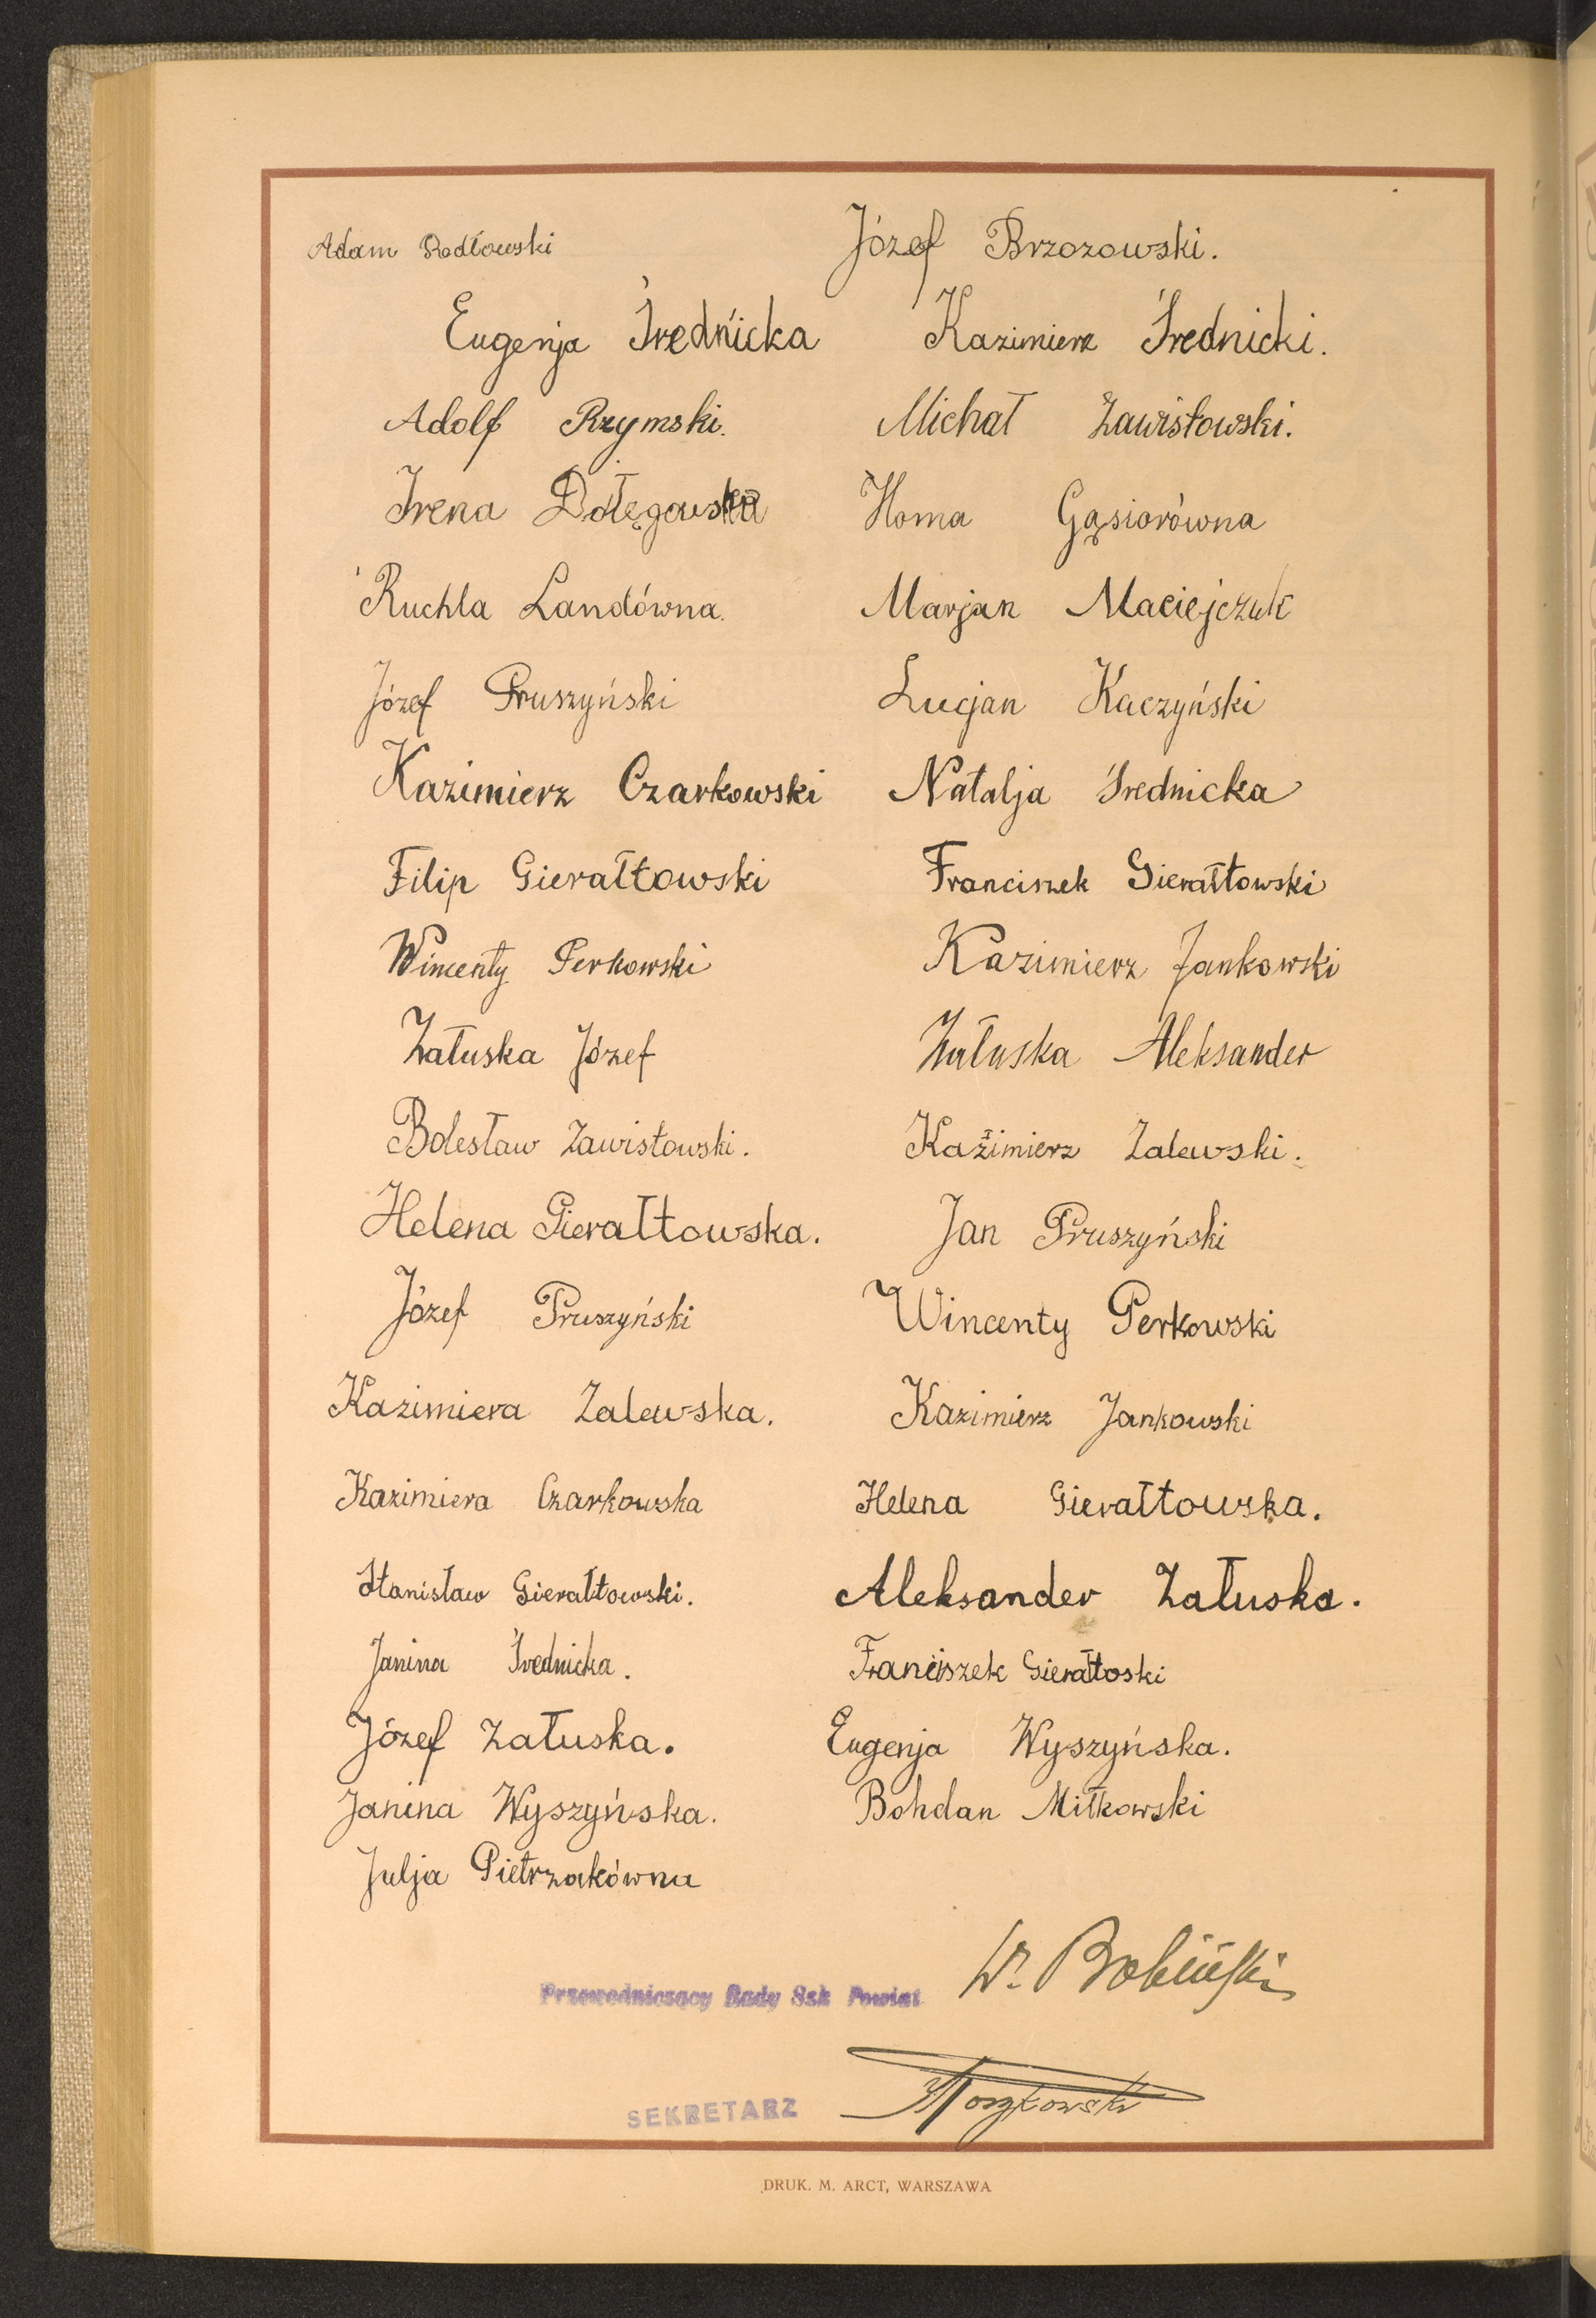 Adam Rodłowski Józef Brzozowski.
Eugenja Średnicka Kazimierz Średnicki.
Adolf Rzymski. Michał Zawistowski.
Irena Dołęgowska Homa Gąsiorówna
Ruchla Landówna. Marjan Maciejczuk
Józef Pruszyński Lucjan Kaczyński
Kazimierz Czarkowski Natalja Średnicka
Filip Gierałtowski Franciszek Gierałtowski
Wincenty Perkowski Kazimierz Jankowski
Załuska Józef Załuska Aleksander
Bolesław Zawistowski. Kazimierz Zalewski.
Helena Gierałtowska. Jan Pruszyński
Józef Pruszyński Wincenty Perkowski
Kazimiera Zalewska. Kazimierz Jankowski
Kazimiera Czarkowska Helena Gierałtowska.
Stanisław Gierałtowski. Aleksander Załuska.
Janina Średnicka. Franciszek Gierałtoski
Józef Załuska. Eugenja Wyszyńska.
Janina Wyszyńska. Bohdan Miłkowski
Julja Pietrzakówna
Przewodniczący Rady Szk Powiat W. Bobiński
SEKRETARZ
DRUK. M. ARCT, WARSZAWA